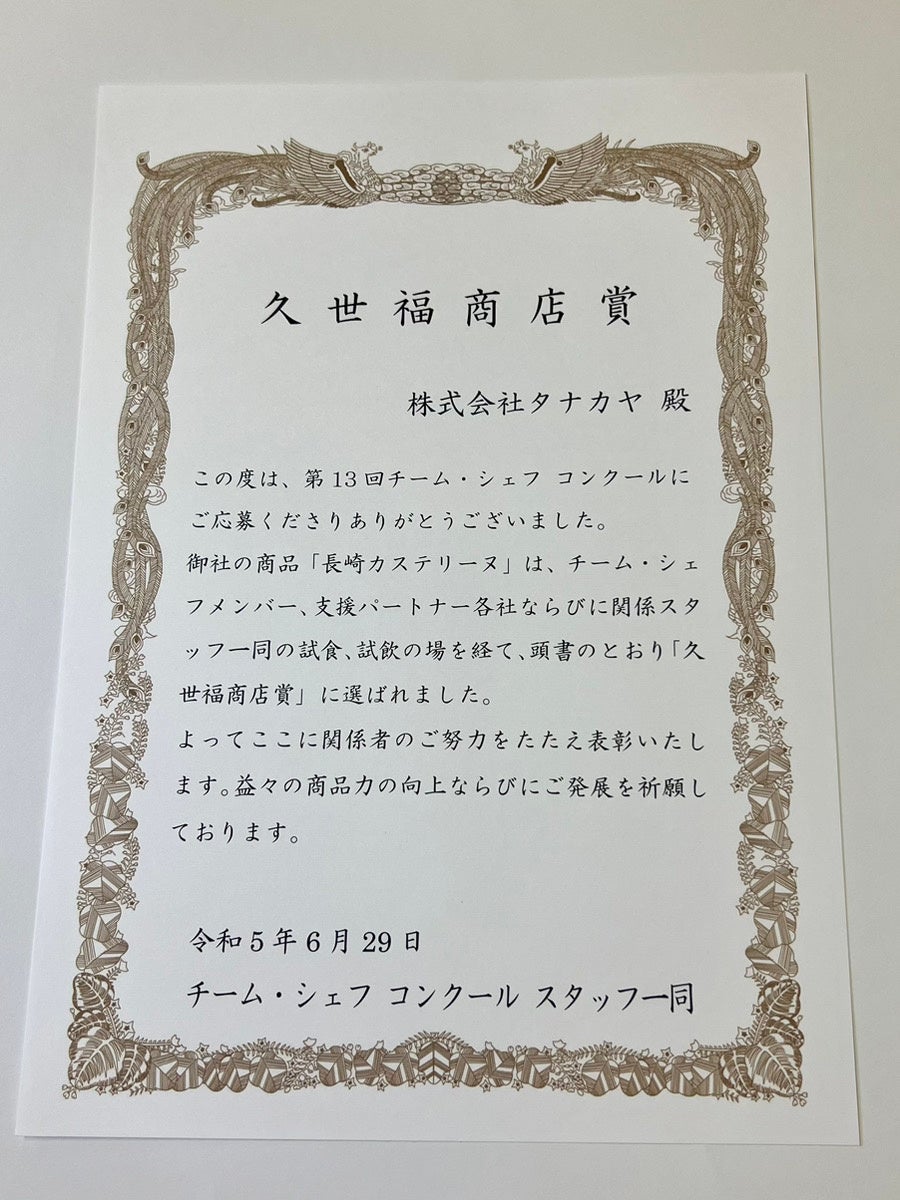 久世福商店賞
株式会社タナカヤ 殿
この度は、第13回チーム・シェフ コンクールに
ご応募くださりありがとうございました。
御社の商品「長崎カステリーヌ」は、チーム・シェ
フメンバー、支援パートナー各社ならびに関係スタ
ッフ一同の試食、試飲の場を経て、頭書のとおり「久
世福商店賞」に選ばれました。
よってここに関係者のご努力をたたえ表彰いたし
ます。益々の商品力の向上ならびにご発展を祈願し
ております。
令和5年6月29日
チーム・シェフ コンクール スタッフ一同